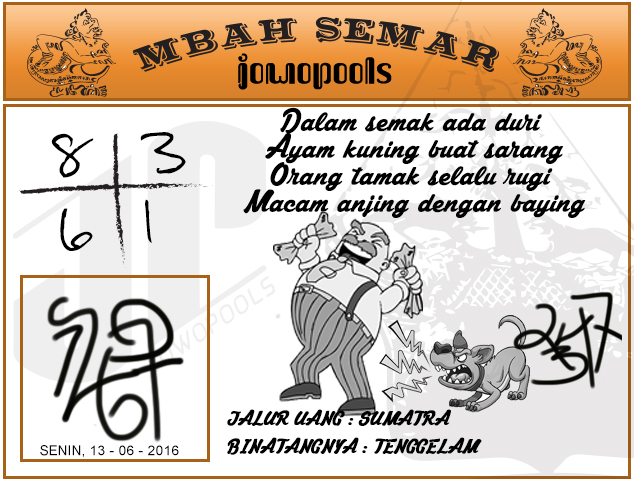 MBAH SEMAR
jowopools
8 3
6 1
Dalam semak ada duri
Ayam kuning buat sarang
Orang tamak selalu rugi
Macam anjing dengan baying
JALUR UANG : SUMATRA
BINATANGNYA : TENGGELAM
SENIN, 13 - 06 - 2016